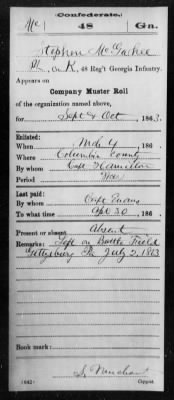 Confederate.
Mc 48 Ga.
Stephen McGahee
Pt, Co. K, 48 Reg't Georgia Infantry.
Appears on
Company Muster Roll
of the organization named above,
for Sept & Oct, 1863.
Enlisted:
When Mch 4, 186 .
Where Columbia County
By whom Capt Hamilton
Period War
Last paid:
By whom Capt Evans
To what time Apl 30, 186 .
Present or absent Absent
Remarks: Left on Battle Field
Gettysburg Pa July 2, 1863
Book mark:
(642) Copyist.